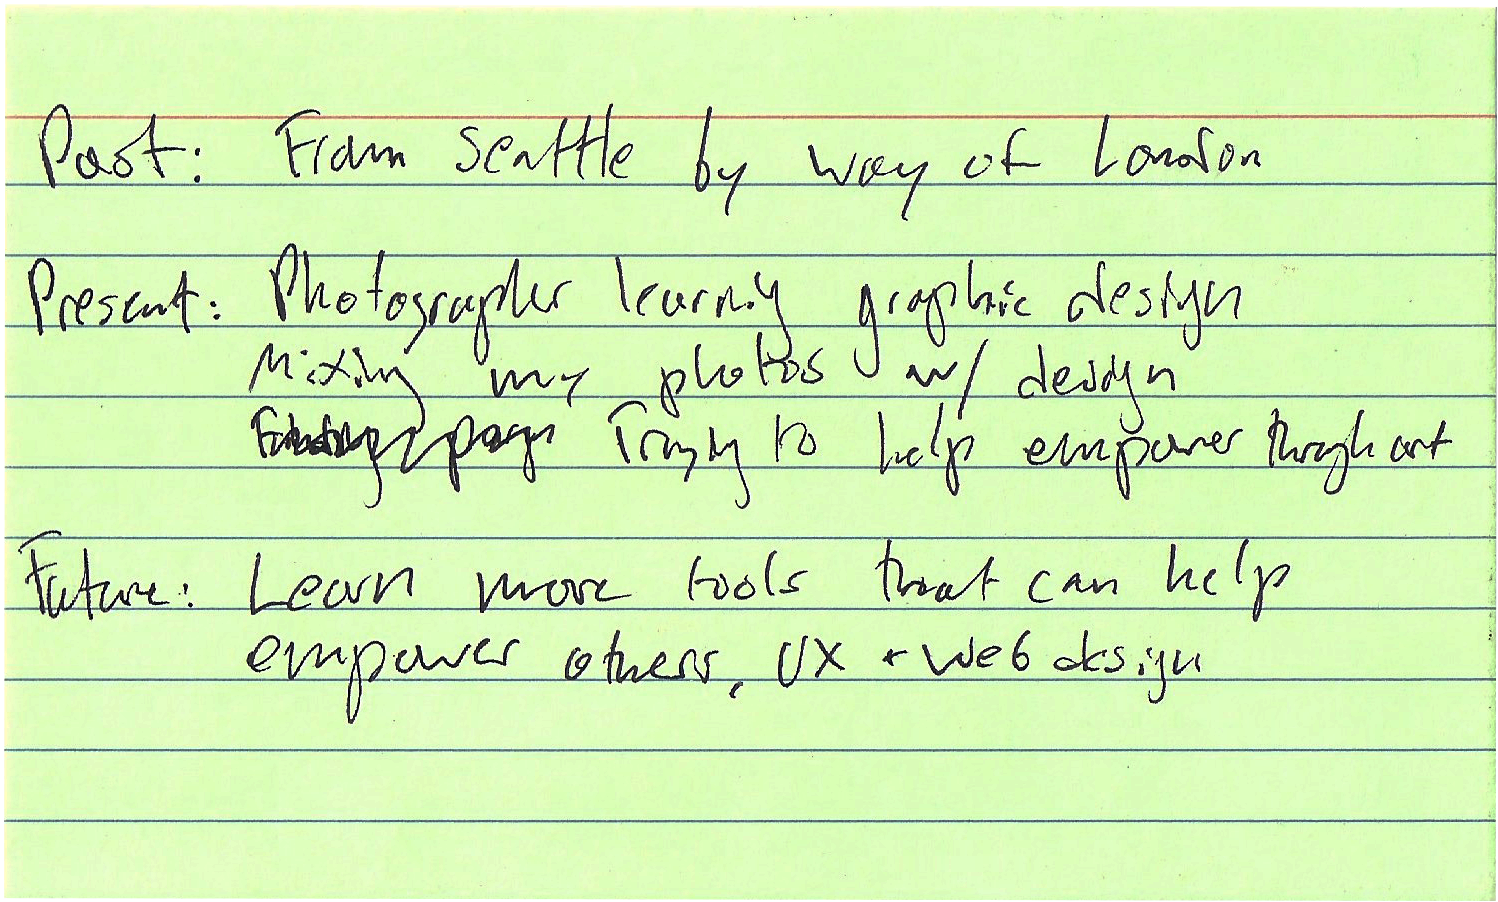 Past: From Seattle by way of London
Present: Photographer learning graphic design
Mixing my photos w/ design
Trying to help empower through art
Future: Learn more tools that can help
empower others, UX + Web design